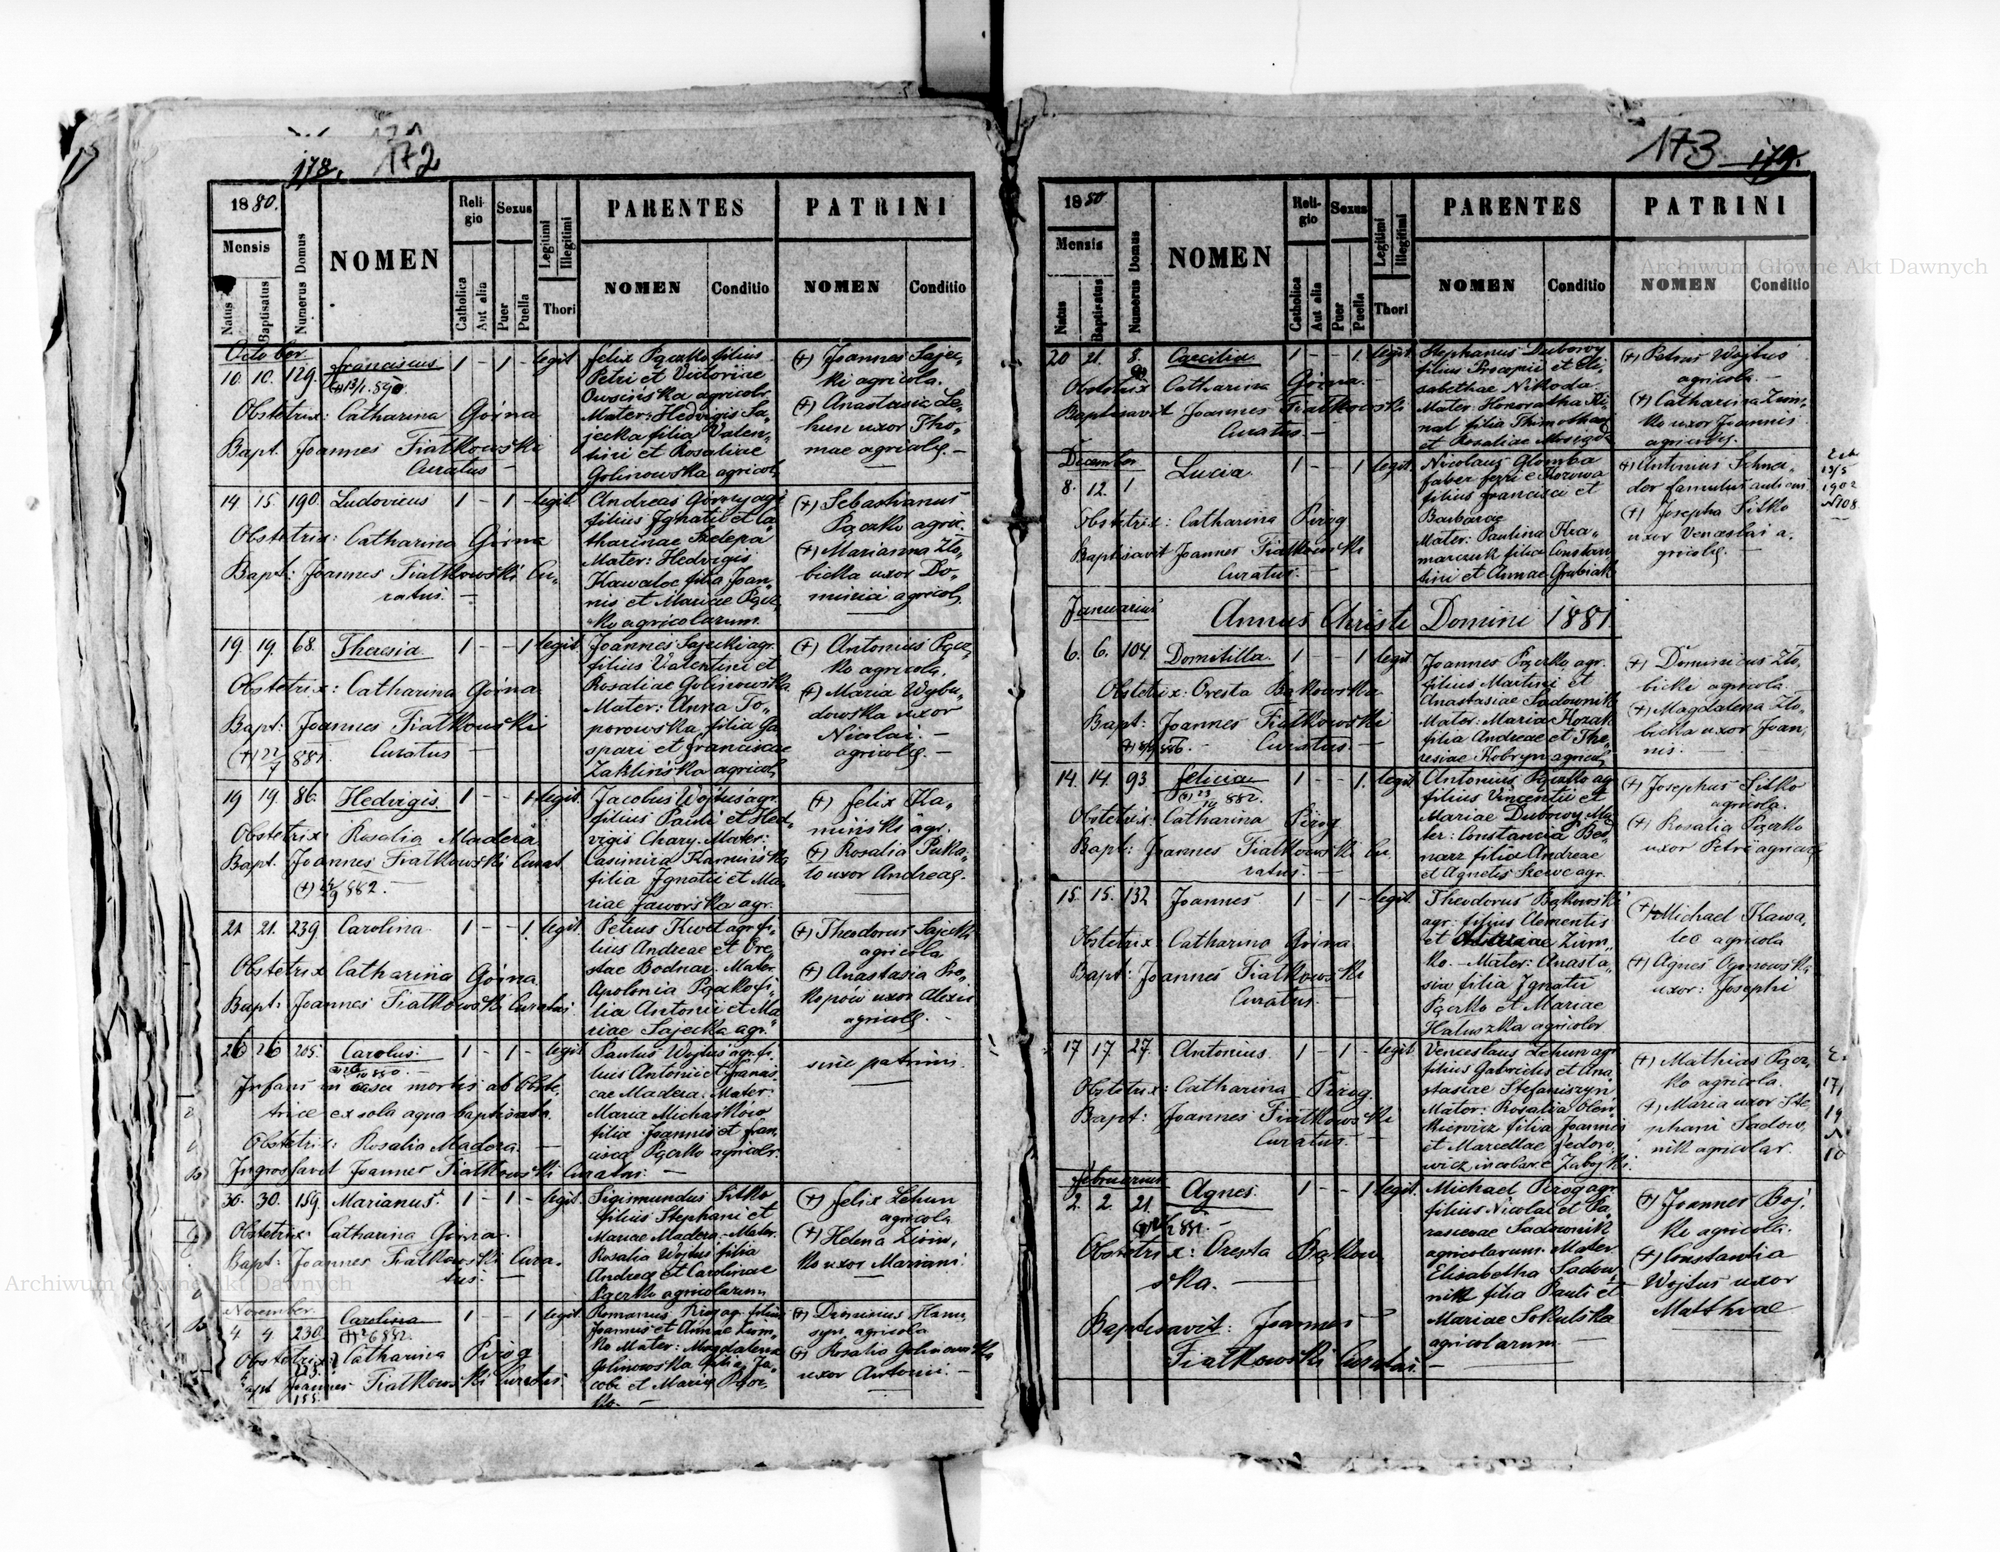 178. 172
1880.
Mensis
Natus
Baptisatus
Numerus Domus
NOMEN
Religio
Catholica
Aut alia
Sexus
Puer
Puella
Legitimi
Illegitimi
Thori
PARENTES
NOMEN
Conditio
PATRINI
NOMEN
Conditio
October
10. 10. 129. Franciscus 1 - 1 - legit.
Obstetrix: Catharina Górna
Bapt. Joannes Fiatkowski
Curatus -
Felix Pączko filius
Petri et Victoriae
Owsińska agricolr.
Mater: Hedvigis Sa„
jecka filia Valen„
tini et Rosaliae
Golinowska agricol.
(+) Joannes Sajec„
ki agricola.
(+) Anastasia Le„
hun uxor Tho„
mae agricolę. -
14 15. 190. Ludovicus 1 - 1 - legit.
Obstetrix: Catharina Górna
Bapt: Joannes Fiatkowski Cu„
ratus. -
Andreas Górny agr.
filius Ignatii et Ca
tharinae Szelepa
Mater: Hedvigis
Kawalec filia Joan„
nis et Mariae Pącz„
ko agricolarum.
(+) Sebastianus
Pączko agric.
(+) Marianna Zło„
bicka uxor Do„
minici agricolę.
19 19. 68. Theresia. 1 - - 1 legit.
Obstetrix: Catharina Górna
Bapt: Joannes Fiatkowski
(+) 22/7 881. Curatus -
Joannes Sajecki agr.
filius Valentini et
Rosaliae Golinowska
Mater: Anna To„
porowska, filia Ga
spari et Franciscae
Zaklińska agricol.
(+) Antonius Pącz„
ko agricola.
(+) Maria Wybu„
dowska uxor
Nicolai. -
agricolę. -
19 19. 86. Hedvigis. 1 - - 1 legit.
Obstetrix: Rosalia Madera
Bapt. Joannes Fiatkowski Curat
(+) 882. -
Jacobus Wojtuś agr.
filius Pauli et Hed„
vigis Chary. Mater:
Casimira Kamińska
filia Ignatii et Ma
riae Jaworska agr.
(+) Felix Ka„
miński agr.
(+) Rosalia Puka„
ło uxor Andreae.
21 21. 239. Carolina 1 - - 1 legit.
Obstetrix Catharina Górna
Bapt: Joannes Fiatkowski Curatus
Petrus Kwet agr. fi„
lius Andreae et Ore„
stae Bodnar. Mater.
Apolonia Pączko fi„
lia Antonii et Ma
riae Sajecka agr.
(+) Theodorus Sajecki
agricola
(+) Anastasia Pro„
kopów uxor Alexii
agricolę. -
26 26 205. Carolus. 1 - 1 - legit
Infans in casu mortis ab Obste„
trice ex sola aqua baptisata.
Obstetrix: Rosalia Madera. -
Ingrossavit Joannes Fiatkowski Curatus. -
Paulus Wojtuś agr. fi„
lius Antonii et Francis
cae Madera. Mater:
Maria Michaśków
filia Joannis et Fran„
cisca Pączko agricolr.
sine patrinis.
30. 30. 159. Marianus. 1 - 1 - legit.
Obstetrix: Catharina Górna.
Bapt: Joannes Fiatkowski Cura„
tus: -
Sigismundus Sitko
filius Stephani et
Mariae Madera. Mater.
Rosalia Wojtuś filia
Andreę et Carolinae
Pączko agricolarum
(+) Felix Lehun
agricola
(+) Helena Zium„
ko uxor Mariani.
November.
4 4 230. Carolina 1 - - 1 legit.
Obstetrix: Catharina Pirog
Bapt Joannes Fiatkowski Curatus
155.
Romanus Pirog agr. filius
Joannis et Annae Zium„
ko Mater: Magdalena
Golinowska filia Ja„
cobi et Mariae Pącz„
ko. -
(+) Dominicus Hanu„
syn agricola
(+) Rosalia Golinowska
uxor Antonii.
173 179.
1880
Mensis
Natus
Baptisatus
Numerus Domus
NOMEN
Religio
Catholica
Aut alia
Sexus
Puer
Puella
Legitimi
Illegitimi
Thori
PARENTES
NOMEN
Conditio
PATRINI
NOMEN
Conditio
20 21. 8. Caecilia 1 - - 1. legit.
Obstetrix Catharina Górna. -
Baptisavit Joannes Fiatkowski
Curatus. -
Stephanus Dubowy
filius Procopii et Eli„
sabethae Nikoda
Mater: Honoratha Ki„
nal filia Thimothaei
et Rosaliae
(+) Petrus Wojtuś
agricola. -
(+) Catharina Zium„
ko uxor Joannis
agricolę.
December
8. 12. 1 Lucia 1 - - 1 legit.
Obstetrix: Catharina Pirog
Baptisavit Joannes Fiatkowski
Curatus. -
Nicolaus Glomba
faber ferri e Horowa
filius Francisci et
Barbarae
Mater: Paulina Kra„
marczuk filia Constan
tini et Annae Grabiak
(+) Antonius Schnei„
der famulus aulicus
(+) Josepha Sitko
uxor Venceslai a„
gricolę. -
13/5
1902
N 108.
Januarius Annus Christi Domini 1881.
6. 6. 104. Domitilla. 1 - - 1 legit.
Obstetrix: Oresta Bąkowska
Bapt: Joannes Fiatkowski
886. - Curatus -
Joannes Pączko agr.
filius Martini et
Anastasiae Sadownik
Mater: Maria Kozak
filia Andreae et The„
resiae Kobryn agricol.
(+) Dominicus Zło„
bicki agricola.
(+) Magdalena Zło„
bicka uxor Joan„
nis. -
14. 14. 93. Feliciae 1 - - 1. legit.
882.
Obstetrix: Catharina Pirog
Bapt: Joannes Fiatkowski Cu„
ratus. -
Antonius Pączko agr
filius Vincentii et
Mariae Dubowy. Ma„
ter: Constancia Bed„
narz filia Andreae
et Agnetis Szewc agr.
(+) Josephus Sitko
agricola.
(+) Rosalia Pączko
uxor Petri agricolę
15. 15. 132 Joannes 1 - 1 - legit.
Obstetrix: Catharina Górna
Bapt: Joannes Fiatkowski
Curatus. -
Theodorus Bąkowski
agr. filius Clementis
et Zium„
ko. - Mater: Anasta„
sia filia Ignatii
Pączko et Mariae
Hałuszka agricolar
(+) Michael Kawa„
lec agricola
(+) Agnes Ogonowska
uxor: Josephi
17 17. 27. Antonius. 1 - 1 - legit.
Obstetrix: Catharina Pirog.
Bapt: Joannes Fiatkowski
Curatus. -
Venceslaus Lehun agr
filius Gabrielis et Ana„
stasiae Stefaniszyn
Mater: Rosalia Olen„
kiewicz filia Joannis
et Marcellae Fedoro„
wicz incolar. e Zabojki.
(+) Mathias Pącz„
ko agricola.
(+) Maria uxor Ste„
phani Sadow„
nik agricolar.
17/
19
N
10
Februarius
2. 2. 21. Agnes. 1 - - 1 legit.
881. -
Obstetrix: Oresta Bąkow„
ska. -
Baptisavit: Joannes -
Fiatkowski Curatus. -
Michael Pirog agr.
filius Nicolai et Pa„
rascevae Sadownik
agricolarum. Mater
Elisabetha Sadow„
nik filia Pauli et
Mariae Sokulska
agricolarum. -
(+) Joannes Boj„
ko agricola.
(+) Constantia
Wojtuś uxor
Matthiae
Archiwum Główne Akt Dawnych
Archiwum Główne Akt Dawnych